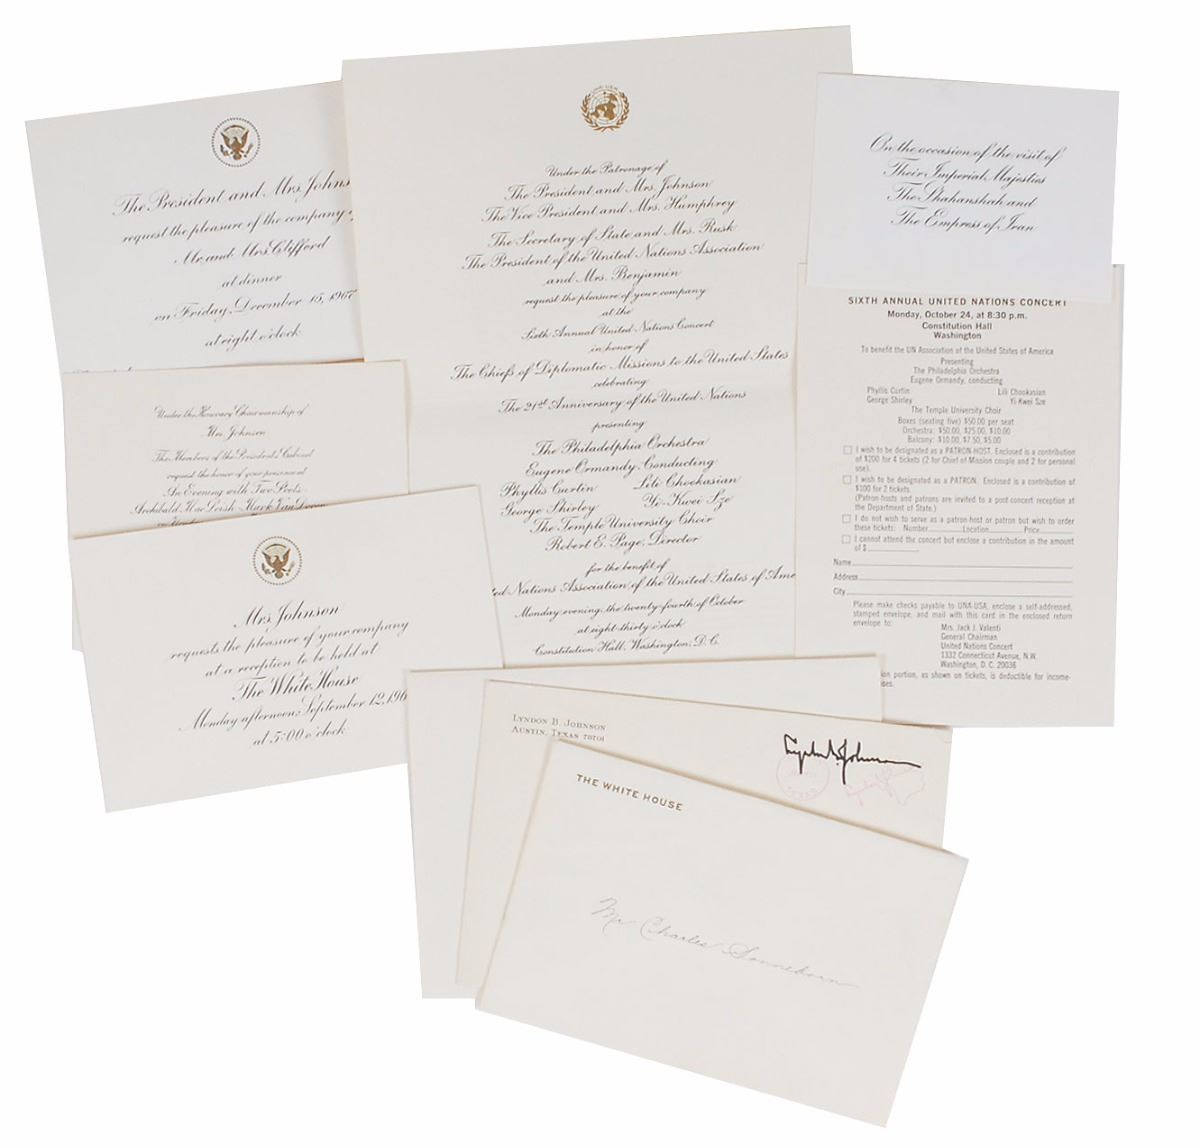 The President and Mrs. Johns
request the pleasure of the company
Mr. and Mrs. Clifford
at dinner
on Friday, December 15, 1967
at eight o'clock
Under the Honorary Chairmanship of
Mrs. Johnson
The Members of the President's Cabinet
request the honor of your presence at
An Evening with Two Poets
Archibald MacLeish Mark Van Doren
Mrs. Johnson
requests the pleasure of your company
at a reception to be held at
The White House
Monday afternoon, September 12, 196
at 5:00 o'clock
Under the Patronage of
The President and Mrs. Johnson
The Vice President and Mrs. Humphrey
The Secretary of State and Mrs. Rusk
The President of the United Nations Association
and Mrs. Benjamin
request the pleasure of your company
at the
Sixth Annual United Nations Concert
in honor of
The Chiefs of Diplomatic Missions to the United States
celebrating
The 21st Anniversary of the United Nations
presenting
The Philadelphia Orchestra
Eugene Ormandy, Conducting
Phyllis Curtin Lili Chookasian
George Shirley Yi-Kwei Sze
The Temple University Choir
Robert E. Page, Director
for the benefit of
ted Nations Association of the United States of Ame
Monday evening, the twenty-fourth of October
at eight-thirty o'clock
Constitution Hall, Washington, D.C.
On the occasion of the visit of
Their Imperial Majesties
The Shahanshah and
The Empress of Iran
SIXTH ANNUAL UNITED NATIONS CONCERT
Monday, October 24, at 8:30 p.m.
Constitution Hall
Washington
To benefit the UN Association of the United States of America
Presenting
The Philadelphia Orchestra
Eugene Ormandy, conducting
Phyllis Curtin Lili Chookasian
George Shirley Yi-Kwei Sze
The Temple University Choir
Boxes (seating five) $50.00 per seat
Orchestra: $50.00, $25.00, $10.00
Balcony: $10.00, $7.50, $5.00
I wish to be designated as a PATRON-HOST. Enclosed is a contribution
of $200 for 4 tickets (2 for Chief of Mission couple and 2 for personal
use).
I wish to be designated as a PATRON. Enclosed is a contribution of
$100 for 2 tickets.
(Patron-hosts and patrons are invited to a post-concert reception at
the Department of State.)
I do not wish to serve as a patron-host or patron but wish to order
these tickets: Number Location Price
I cannot attend the concert but enclose a contribution in the amount
of $
Name
Address
City
Please make checks payable to UNA-USA, enclose a self-addressed,
stamped envelope, and mail with this card in the enclosed return
envelope to:
Mrs. Jack J. Valenti
General Chairman
United Nations Concert
1332 Connecticut Avenue, N.W.
Washington, D. C. 20036
on portion, as shown on tickets, is deductible for income-
ses.
LYNDON B. JOHNSON
AUSTIN, TEXAS 78701
Lyndon B. Johnson
TEXAS
THE WHITE HOUSE
Mr Charles Sonneborn